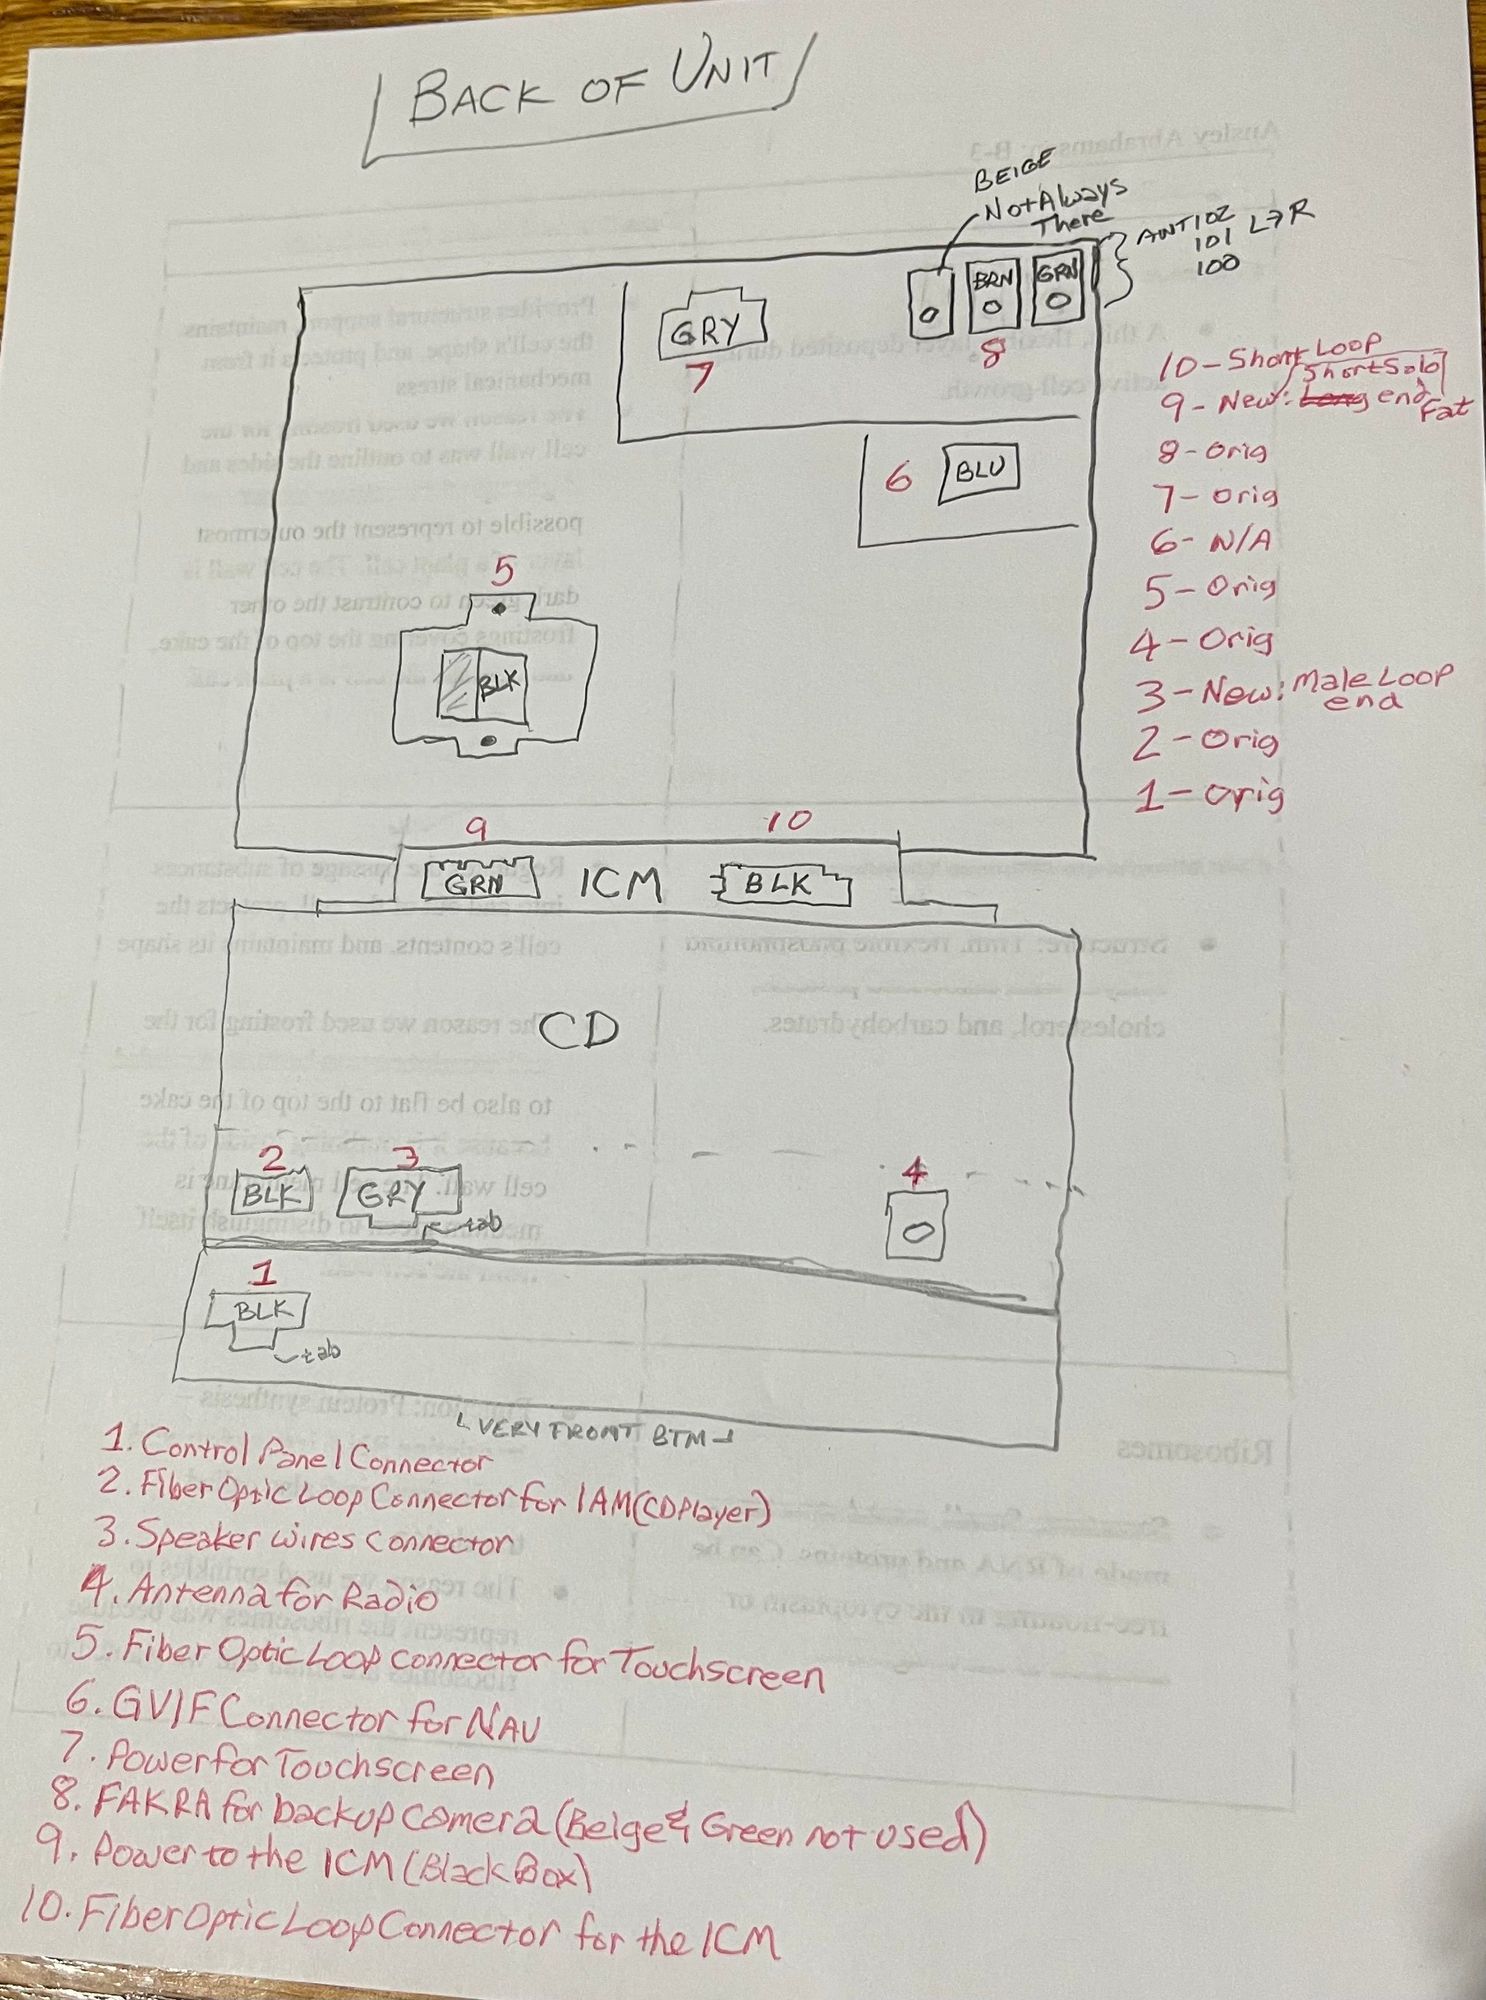 BACK OF UNIT
BEIGE
Not Always
There
ANT102
101 L→R
100
GRY
7
BRN
GRN
8
6
BLU
5
BLK
10 - Short Loop
Short Solo
9 - New: end Fat
8 - orig
7 - orig
6 - N/A
5 - Orig
4 - Orig
3 - New: Male Loop
end
2 - Orig
1 - Orig
9
10
GRN
ICM
BLK
CD
2
BLK
3
GRY
tab
4
1
BLK
tab
VERY FRONT BTM
1. Control Panel Connector
2. Fiber Optic Loop Connector for IAM (CD Player)
3. Speaker wires connector
4. Antenna for Radio
5. Fiber Optic Loop connector for Touchscreen
6. GVIF Connector for NAV
7. Power for Touchscreen
8. FAKRA for backup camera (Beige & Green not used)
9. Power to the ICM (Black Box)
10. Fiber Optic Loop Connector for the ICM